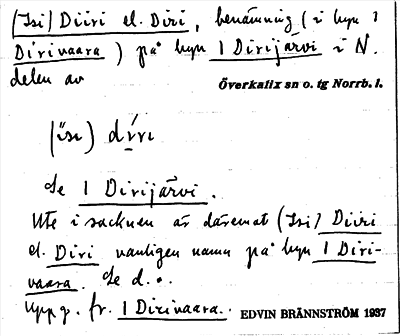 (Isi) Diiri el. Diri, benämning (i byn 1
Dirivaara) på byn 1 Dirijärvi i N.
delen av Överkalix sn o. tg Norrb. l.
(isi) díri
Se 1 Dirijärvi.
Ute i socknen är däremot (Isi) Diiri
el. Diri vanligen namn på byn 1 Diri-
vaara. Se d. o.
Uppg. fr. 1 Dirivaara. EDVIN BRÄNNSTRÖM 1937